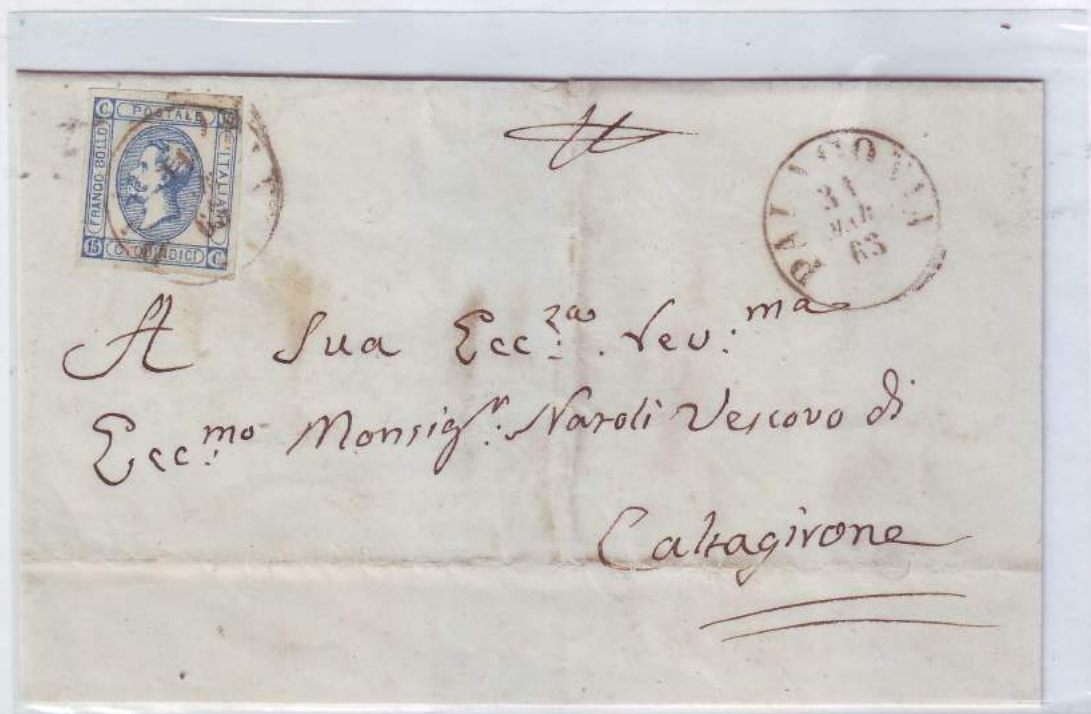 C POSTALE
FRANCO BOLLO
ITALIANO
15 C. QUINDICI C
PALAGONIA
31
MAR
63
A Sua Ecc.za Rev.ma
Ecc.mo Monsig.r Naroli Vescovo di
Caltagirone